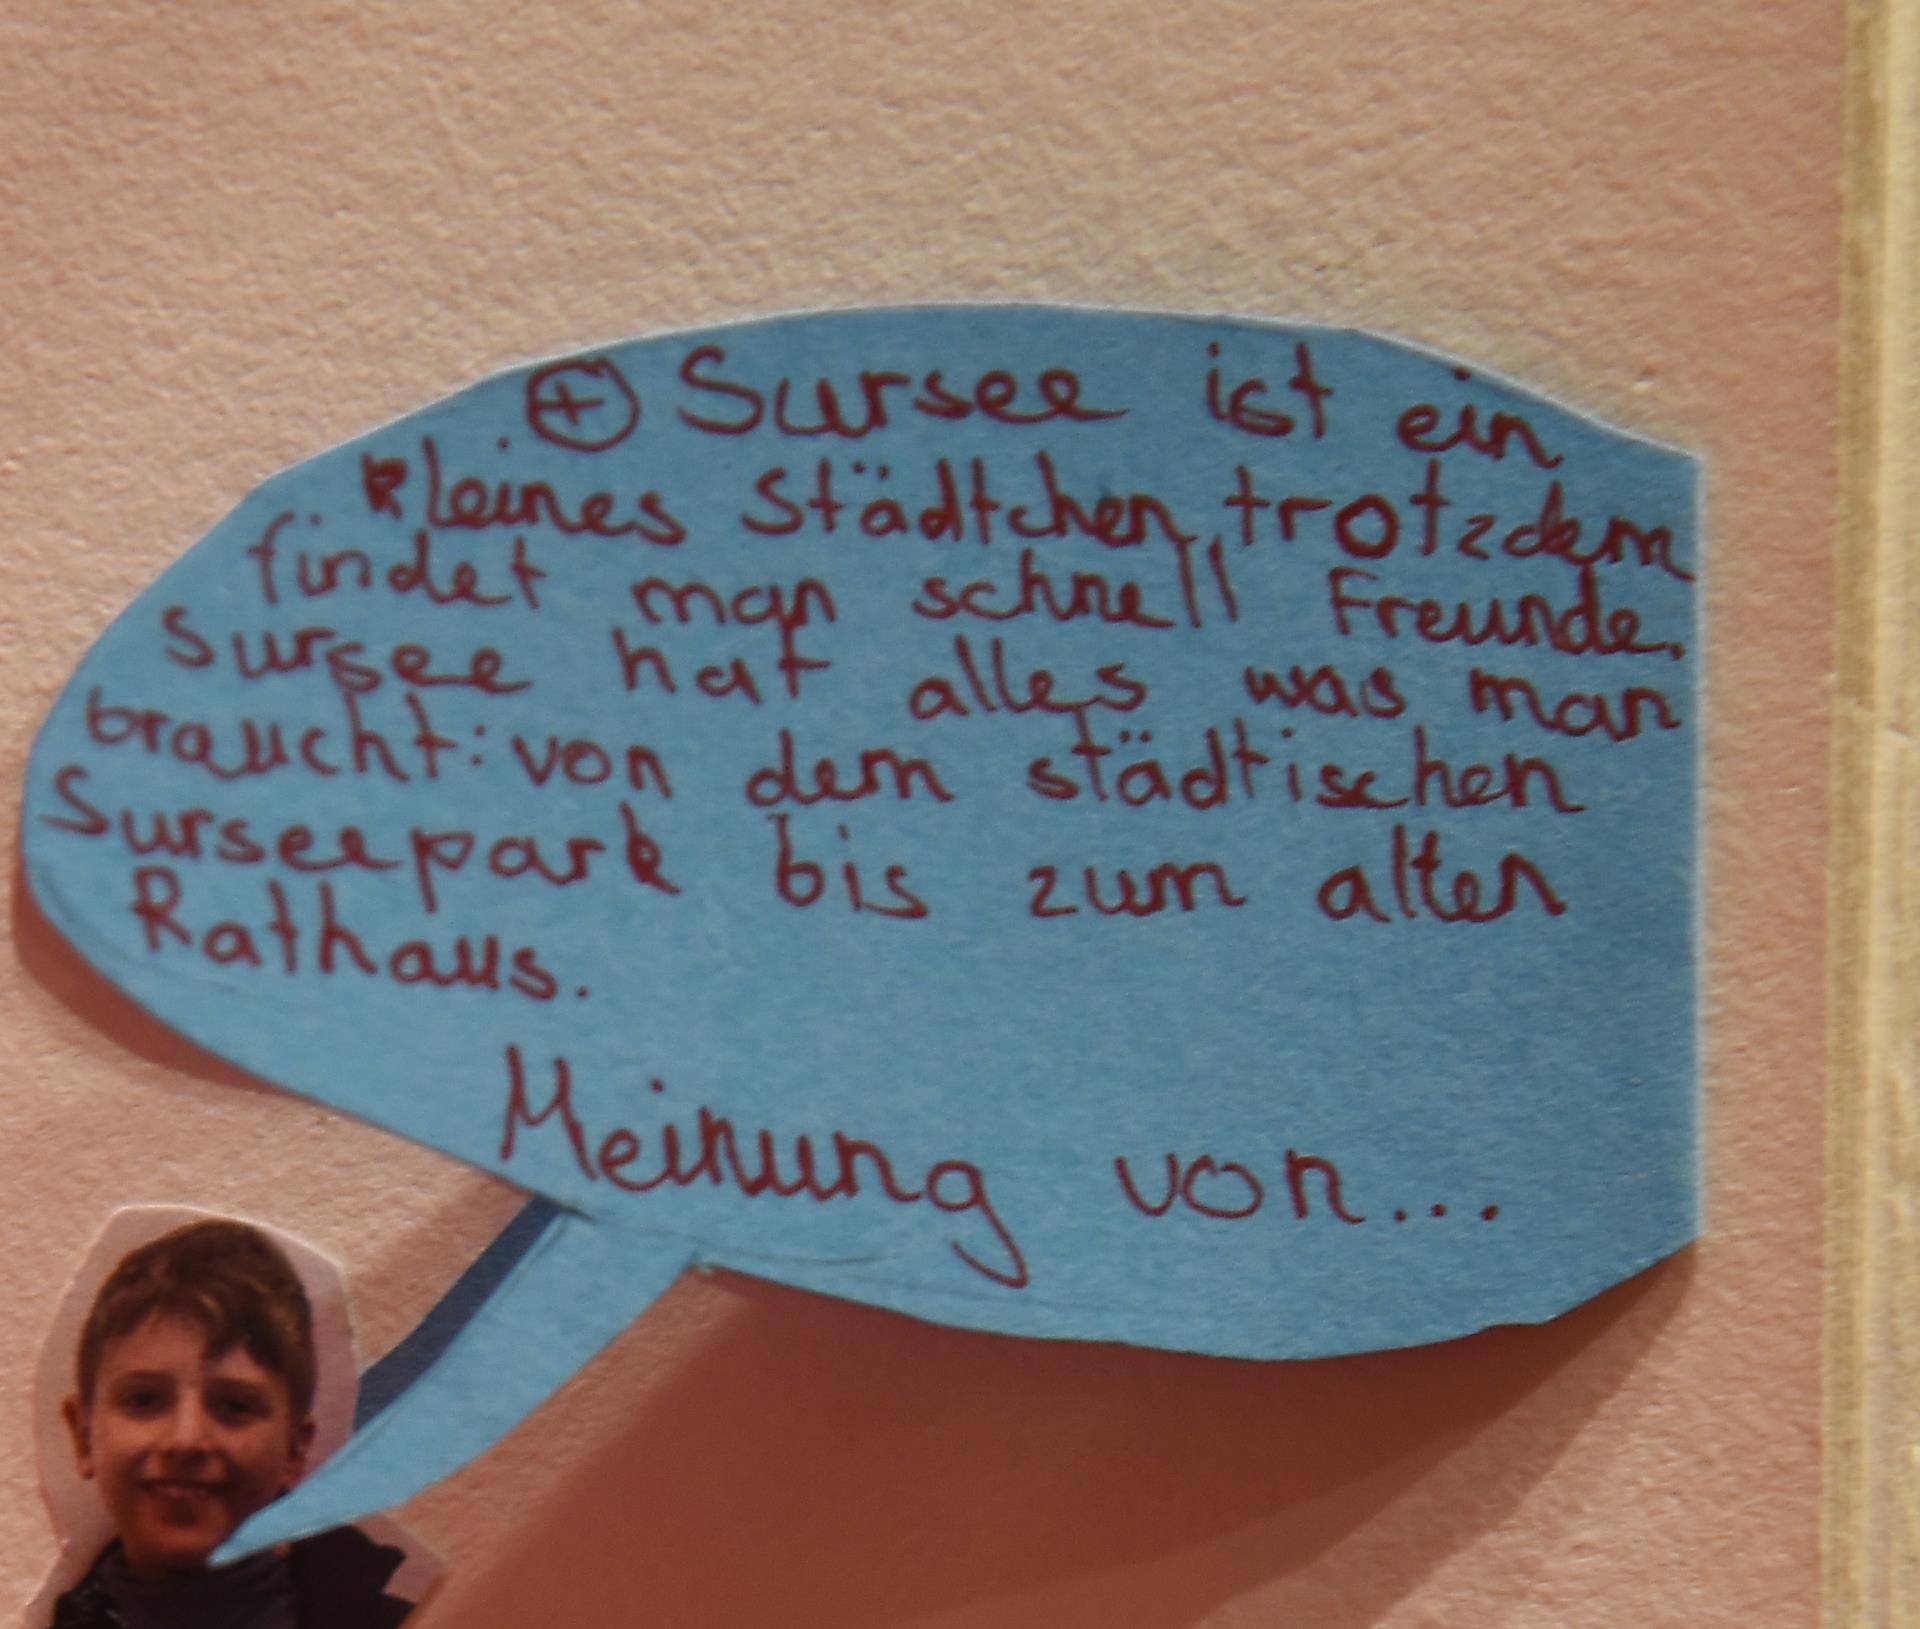 ⊕ Sursee ist ein
kleines Städtchen, trotzdem
findet man schnell Freunde.
Sursee hat alles was man
braucht: von dem städtischen
Surseepark bis zum alten
Rathaus.
Meinung von...